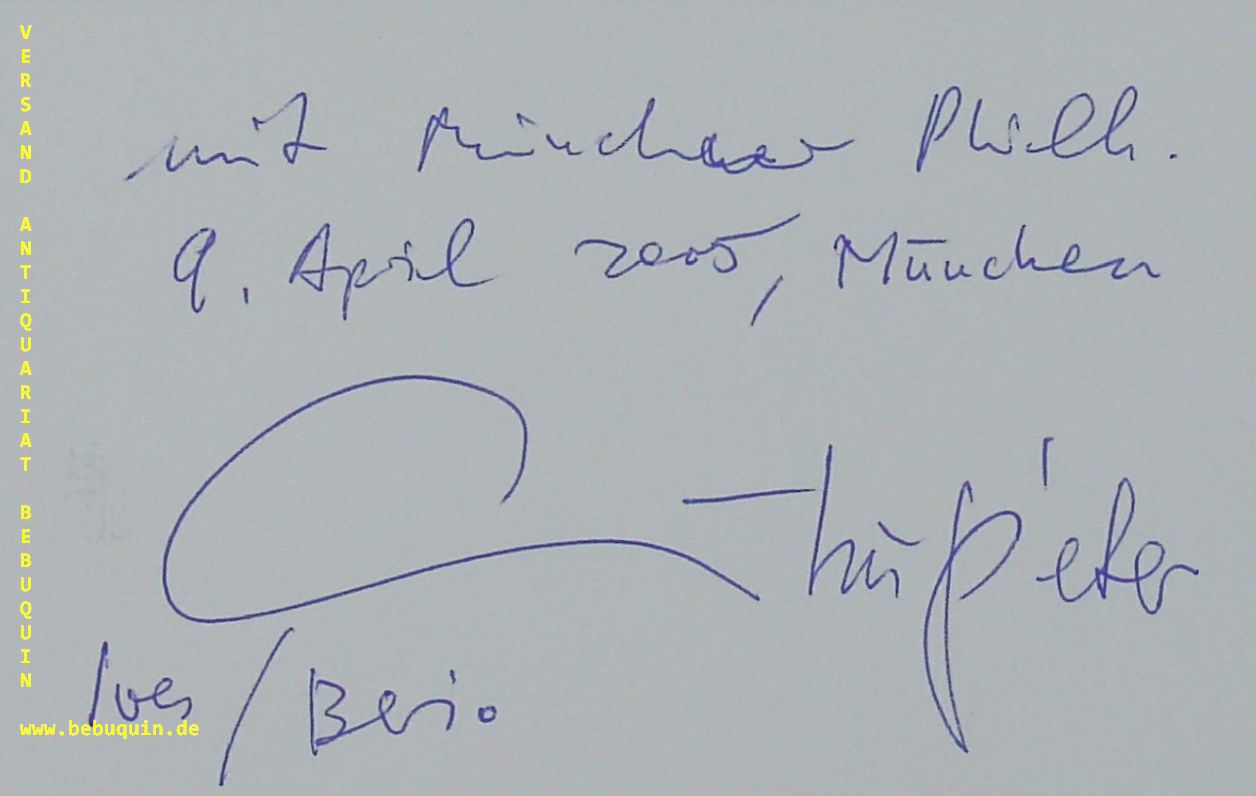 mit Münchner Philh.
9. April 2005, München
für Peter
Ives / Berio
VERSAND ANTIQUARIAT BEBUQUIN
www.bebuquin.de